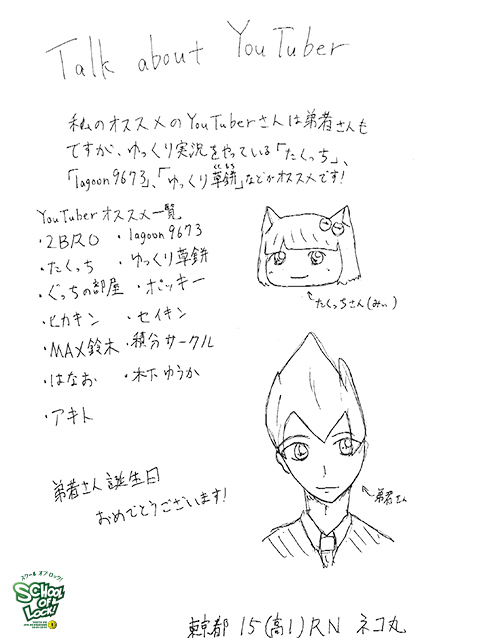 Talk about YouTuber
私のオススメのYouTuberさんは弟者さんも
ですが、ゆっくり実況をやっている「たくっち」、
「lagoon9673」、「ゆっくり草餅」などがオススメです!
YouTuberオススメ一覧
・2BRO ・lagoon9673
・たくっち ・ゆっくり草餅
・ぐっちの部屋 ・ポッキー
・ヒカキン ・セイキン
・MAX鈴木 ・積分サークル
・はなお ・木下ゆうか
・アキト
←たくっちさん(みぃ)
←弟者さん
弟者さん誕生日
おめでとうございます!
スクール オブ ロック!
SCHOOL OF LOCK!
東京都 15(高1) RN ネコ丸